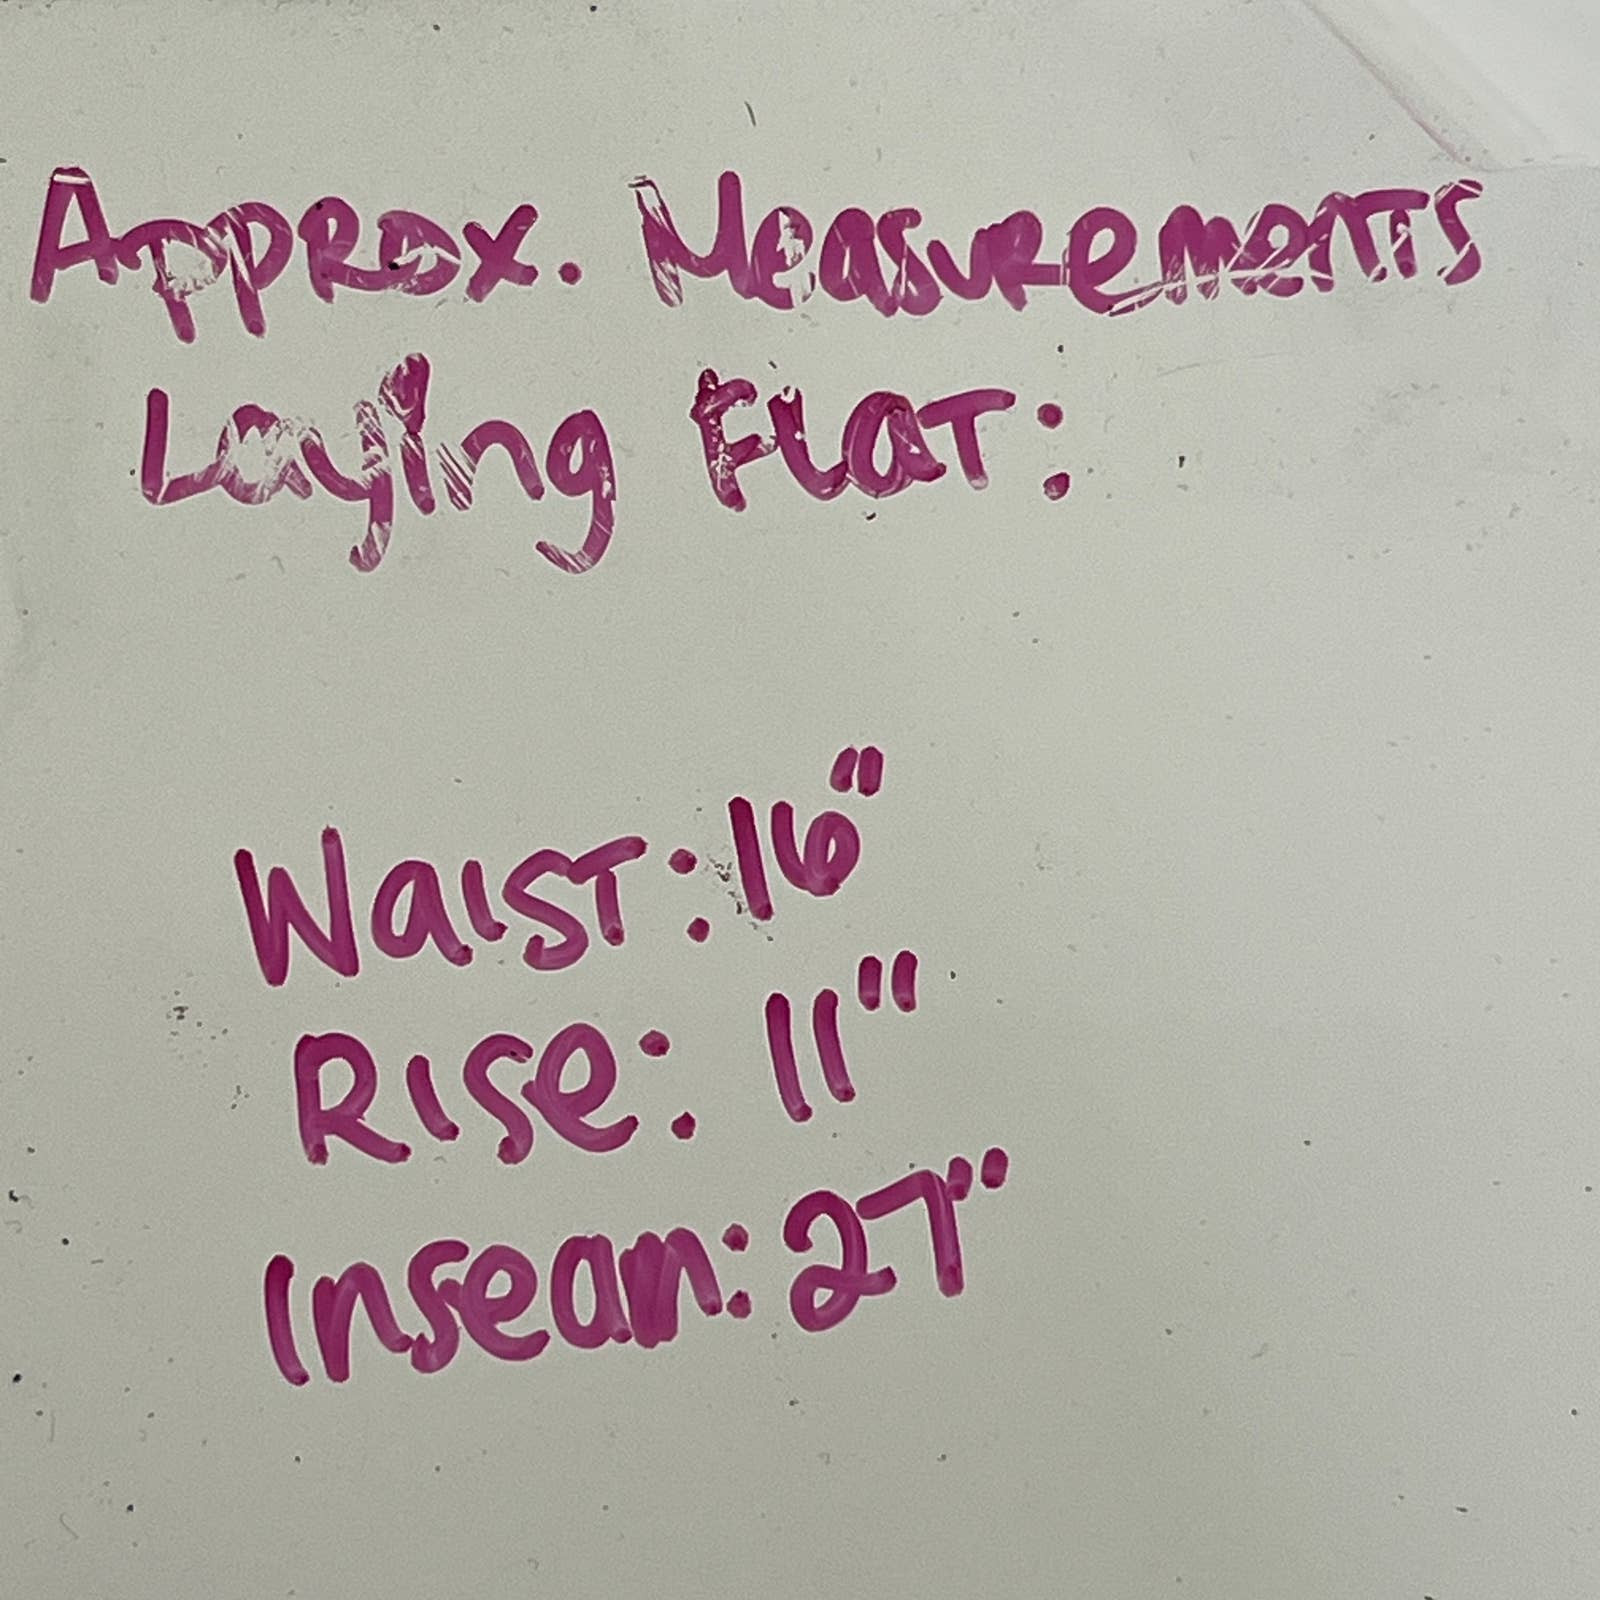 Approx. Measurements
Laying Flat:
Waist: 16"
Rise: 11"
Inseam: 27"